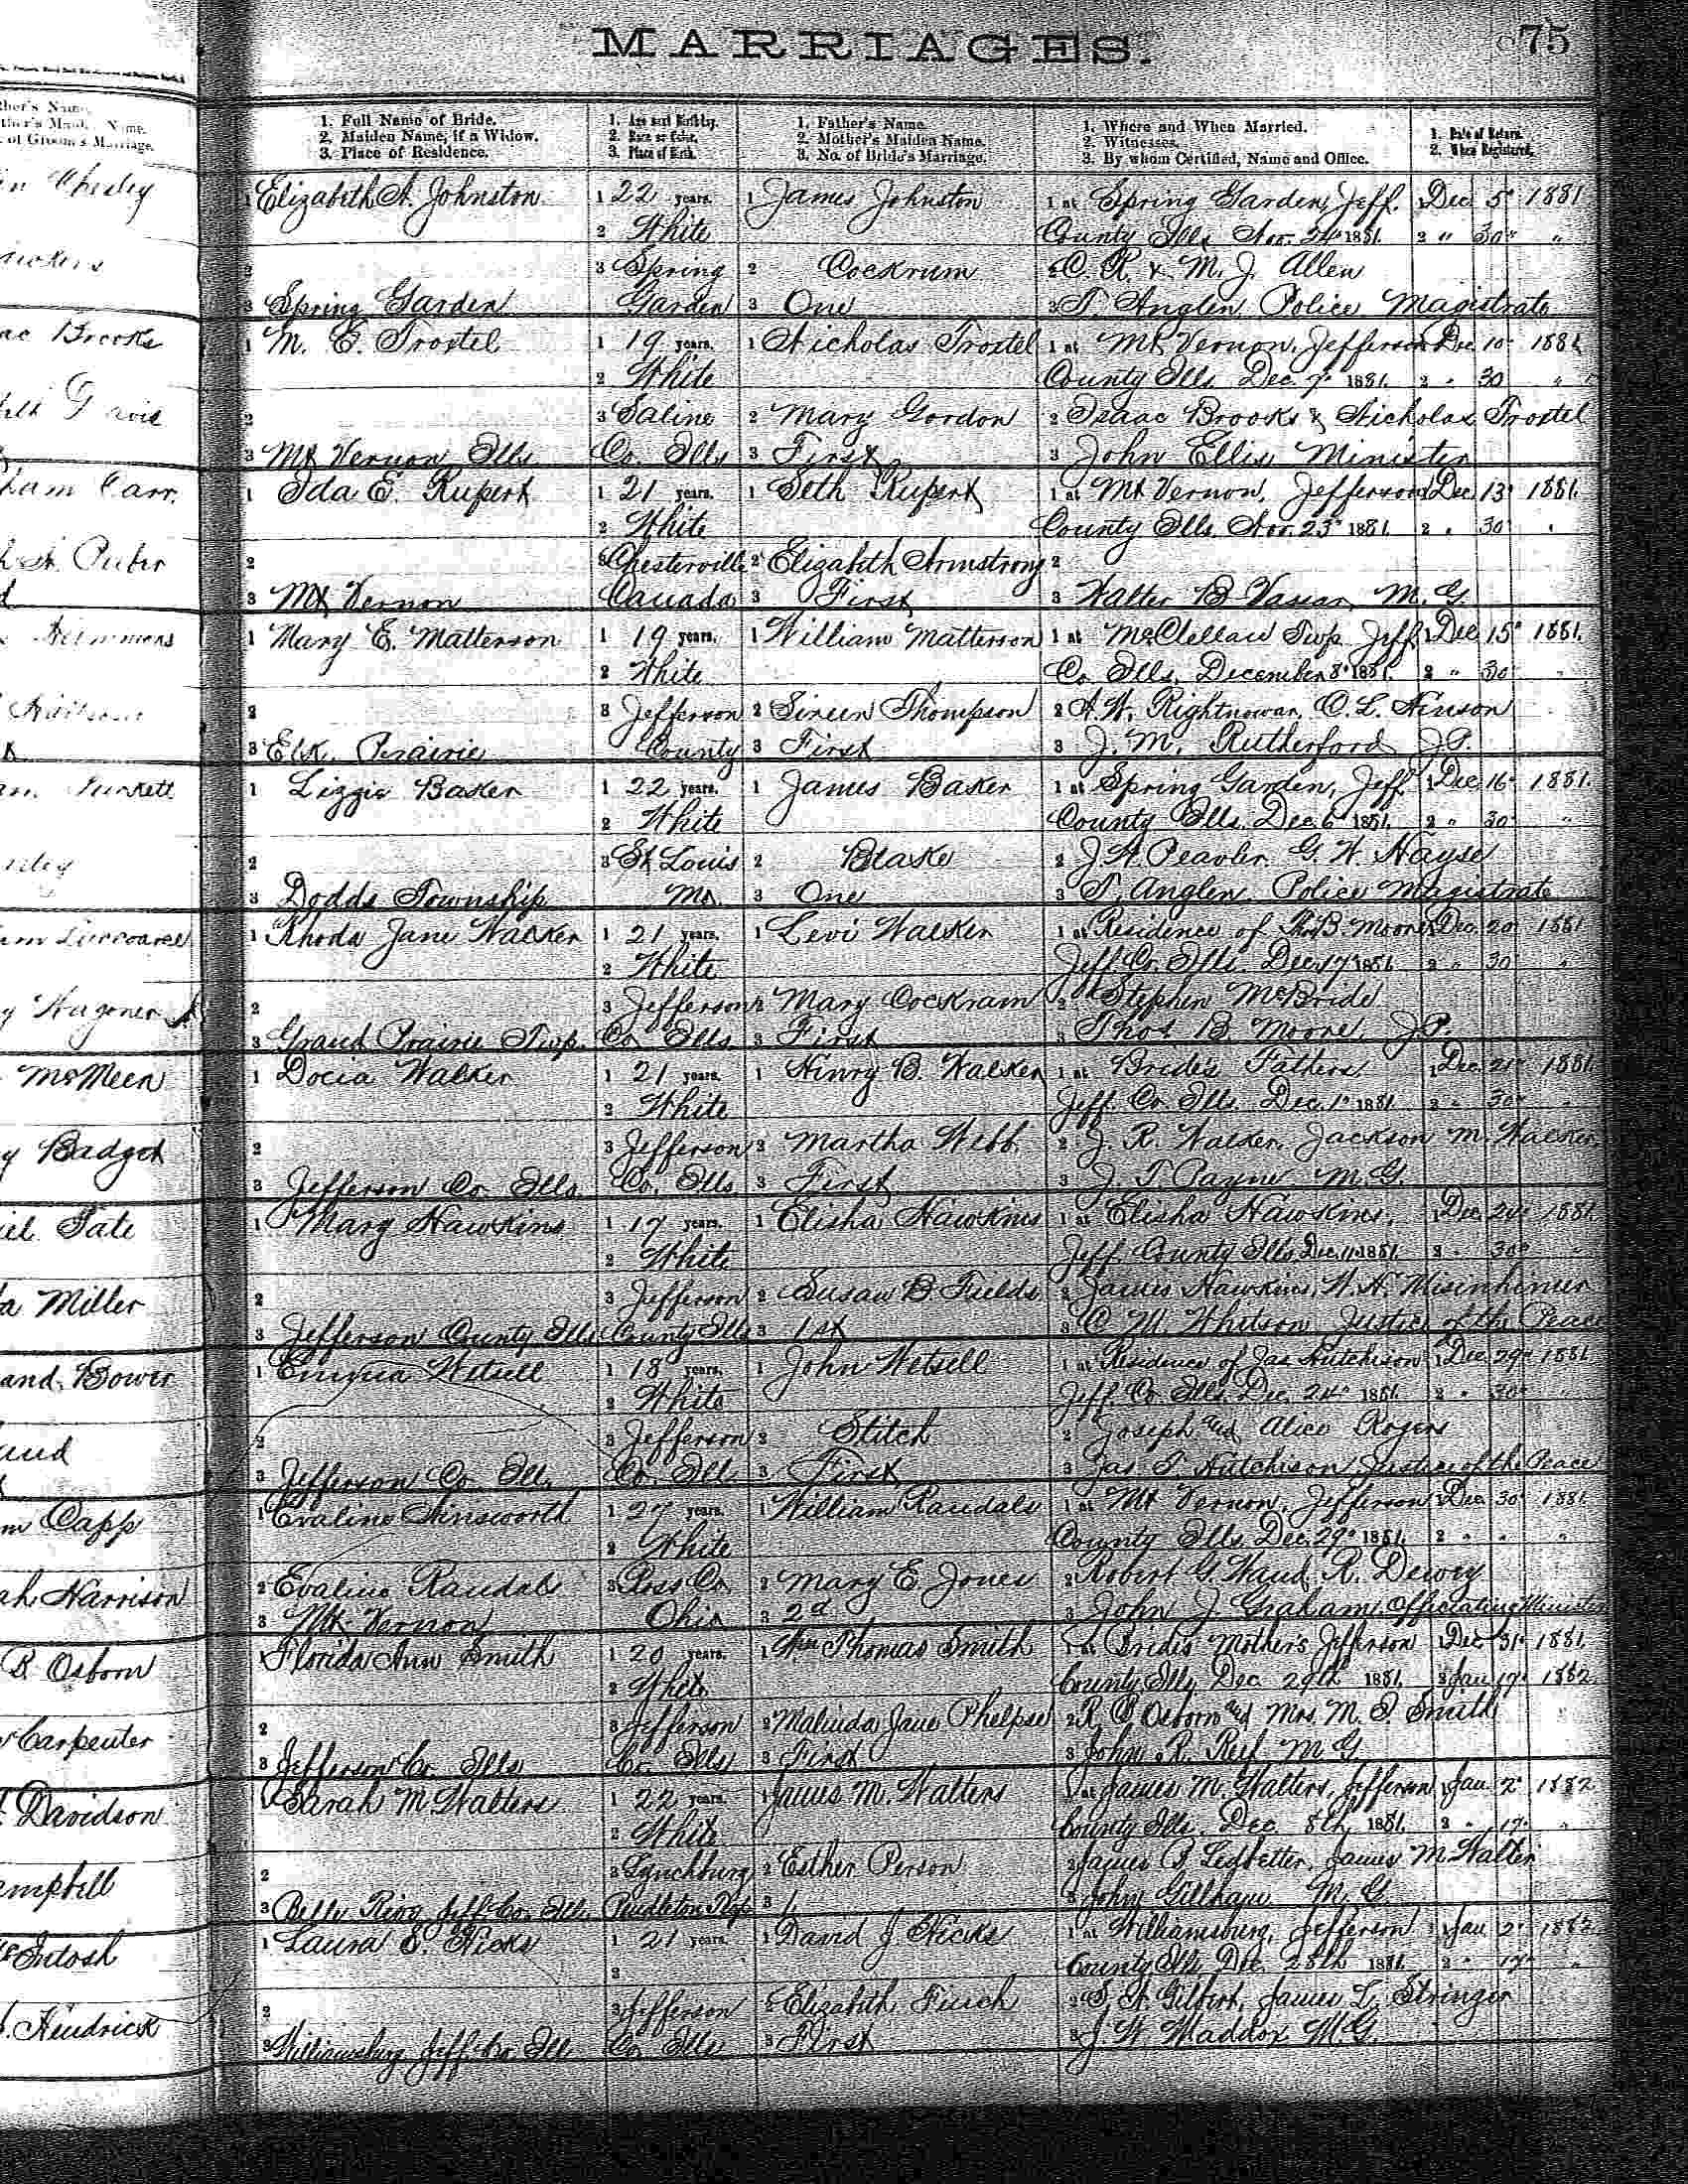 MARRIAGES.
75
1. Full Name of Bride.
2. Maiden Name, if a Widow.
3. Place of Residence.
1. Age next Birthday.
2. Race or Color.
3. Place of Birth.
1. Father's Name.
2. Mother's Maiden Name.
3. No. of Bride's Marriage.
1. Where and When Married.
2. Witnesses.
3. By whom Certified, Name and Office.
1. Date of Return.
2. When Registered.
1 Elizabeth A. Johnston 1 22 years. 1 James Johnston 1 at Spring Garden, Jeff. 1 Dec 5" 1881
2 White County Ills Nov. 24" 1881. 2 " 30" "
2 3 Spring 2 Cockrum 2 C. R. & M. J. Allen
3 Spring Garden Garden 3 One 3 T. Anglen Police Magistrate
1 M. E. Trostel 1 19 years. 1 Nicholas Trostel 1 at Mt Vernon, Jefferson Dec 10" 1881
2 White County Ills Dec. 7" 1881. 2 " 30 "
2 3 Saline 2 Mary Gordon 2 Isaac Brooks & Nicholas Trostel
3 Mt Vernon Ills Co. Ills 3 First 3 John Ellis Minister
1 Ida E. Rupert 1 21 years. 1 Seth Rupert 1 at Mt Vernon, Jefferson Dec 13" 1881.
2 White County Ills Nov. 23" 1881. 2 " 30" "
2 3 Chesterville 2 Elizabeth Armstrong 2
3 Mt Vernon Canada 3 First 3 Walter B M. G.
1 Mary E. Matterson 1 19 years. 1 William Matterson 1 at McClellan Twp Jeff. 1 Dec 15" 1881.
2 White Co. Ills. December 8" 1881. 2 " 30" "
2 3 Jefferson 2 Sireen Thompson 2 A. W. Rightnowar, O. L. Hinson
3 Elk Prairie County 3 First 3 J. M. Rutherford J.P.
1 Lizzie Baker 1 22 years. 1 James Baker 1 at Spring Garden, Jeff. 1 Dec 16" 1881.
2 White County Ills. Dec. 6" 1881. 2 " 30" "
2 3 St Louis 2 Blake 2 J. H. Peavler G. W. Hayse
3 Dodds Township Mo. 3 One 3 T. Anglen Police Magistrate
1 Rhoda Jane Walker 1 21 years. 1 Levi Walker 1 at Residence of Thos B. Moore Dec. 20" 1881
2 White Jeff. Co. Ills. Dec. 17" 1881. 2 " 30" "
2 3 Jefferson 2 Mary Cockram 2 Stephen McBride
3 Grand Prairie Twp. Co Ills 3 First 3 Thos B. Moore, J.P.
1 Docia Walker 1 21 years. 1 Henry B. Walker 1 at Bride's Fathers 1 Dec. 21" 1881.
2 White Jeff. Co. Ills. Dec. 1" 1881. 2 " 30" "
2 3 Jefferson 2 Martha Webb 2 J. R. Walker, Jackson M. Walker
3 Jefferson Co. Ills. Co. Ills 3 First 3 J. T. Payne M.G.
1 Mary Hawkins 1 17 years. 1 Elisha Hawkins 1 at Elisha Hawkins, 1 Dec. 24" 1881.
2 White Jeff. County Ills. Dec. 11" 1881. 2 " 30" "
2 3 Jefferson 2 Susan B Fields 2 James Hawkins, W. H. Misenhimer
3 Jefferson County Ills County Ills 3 1st 3 C. M. Whitson Justice of the Peace
1 Emma Wetsell 1 18 years. 1 John Wetsell 1 at Residence of Jas Hutchison 1 Dec. 29" 1881
2 White Jeff. Co. Ills. Dec. 24" 1881. 2 " 30" "
2 3 Jefferson 2 Stitch 2 Joseph and Alice Rogers
3 Jefferson Co. Ill. Co. Ill. 3 First 3 Jas. T. Hutchison Justice of the Peace
1 Evaline Ainsworth 1 27 years. 1 William Randals 1 at Mt Vernon, Jefferson 1 Dec. 30" 1881.
2 White County Ills. Dec. 29" 1881. 2 " " "
2 Evaline Randals 3 Ross Co. 2 Mary E. Jones 2 Robert G. R. Dewey
3 Mt Vernon Ohio 3 2d 3 John J Graham. Officiating Minister
1 Florida Ann Smith 1 20 years. 1 Wm Thomas Smith 1 at Brides Mother's Jefferson 1 Dec 31" 1881.
2 White County Ills Dec. 29th 1881. 2 Jan 17" 1882
2 3 Jefferson 2 Malinda Jane Phelps 2 R. B Osborn and Mrs. M. P. Smith
3 Jefferson Co. Ills Co. Ills 3 First 3 John R. M G
1 Sarah M Walters 1 22 years. 1 James M. Walters 1 at James M. Walters, Jefferson 1 Jan 2" 1882
2 White County Ills. Dec 8th, 1881. 2 " 17" "
2 3 Lynchburg 2 Esther Person 2 James P Ledbetter, James M Walter
3 Belle Rive Jeff. Co. Ill. Pendleton 3 1. 3 John Gillham M.G.
1 Laura E. Hicks 1 21 years. 1 David J Hicks 1 at Williamsburg, Jefferson 1 Jan 2" 1882
2 County Ills Dec. 28th 1881. 2 " 17" "
2 3 Jefferson 2 Elizabeth Finch 2 S. A. Gilbert, James L. Stringer
3 Williamsburg Jeff. Co. Ill. Co. Ills 3 First 3 J. W. Maddox M.G.
Chesley
Brooks
Carr.
McMeen
Badget
Tate
Miller
Bower
Capp
Harrison
B. Osborn
Carpenter
Davidson
Hendrick